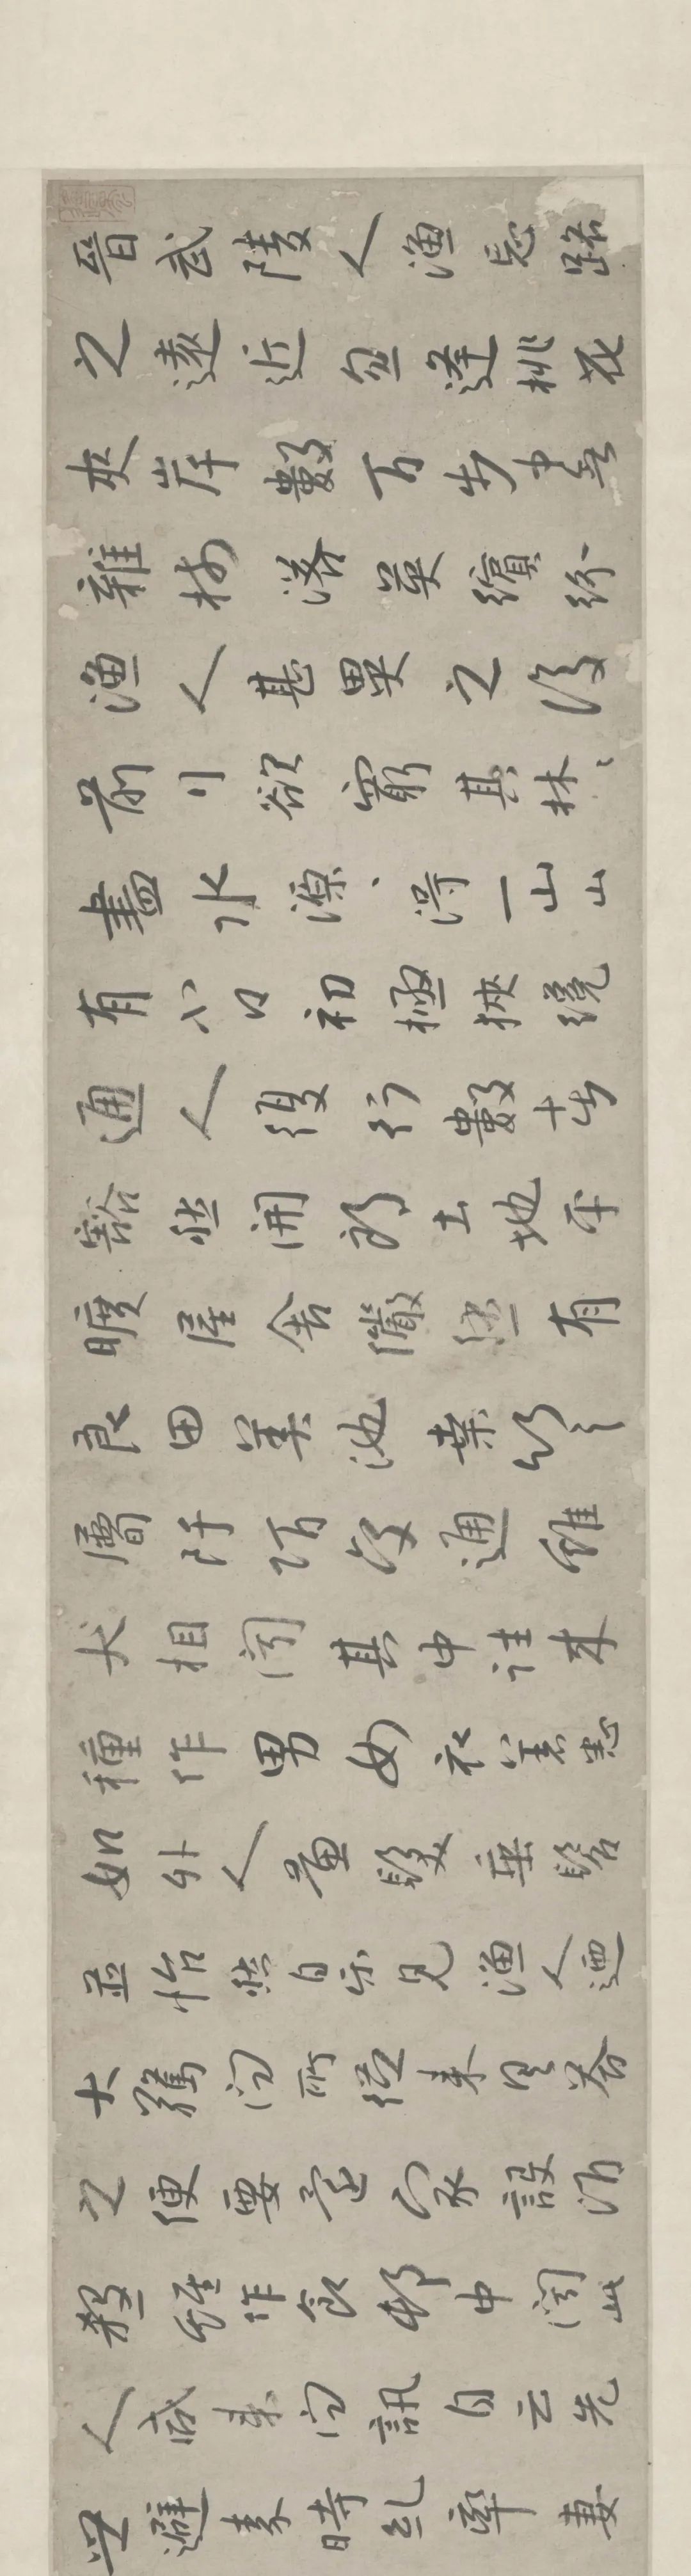 晉武陵人漁忘路
之遠近忽逢桃花
夾岸數百步中無
雜樹落英繽紛
漁人甚異之復
前行欲窮其林〻
盡水源〻得一山山
有小口初極狹纔
通人復行數十步
豁然開朗土地平
曠屋舍儼然有
良田美池桑竹之
屬阡陌交通雞
犬相聞其中往来
種作男女衣著悉
如外人黃髮垂髫
並怡然自樂見漁人迺
大驚問所從来具答
之便要還家設酒
殺雞作食邨中聞此
人咸来問訊自云先
世避秦時亂率妻